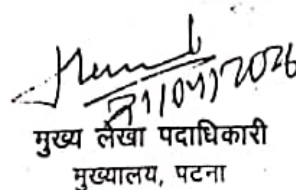 21/04/2026
मुख्य लेखा पदाधिकारी
मुख्यालय, पटना